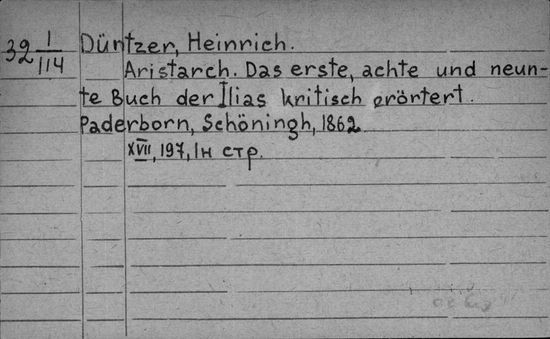 32 1/114 Düntzer, Heinrich.
Aristarch. Das erste, achte und neun-
te Buch der Ilias kritisch erörtert.
Paderborn, Schöningh, 1862
XVII, 197, 1н стр.